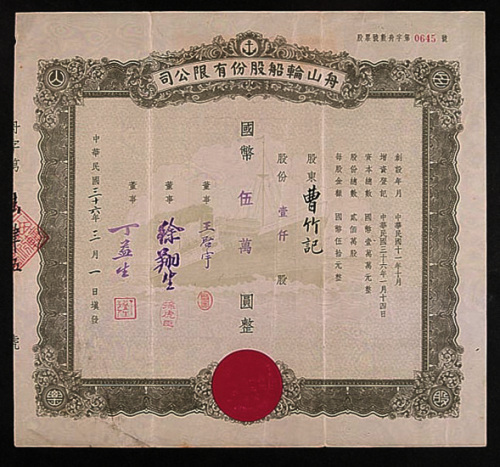 股票號數舟字第 0645 號
舟山輪船股份有限公司
創設年月 中華民國十一年十月
增資登記 中華民國三十六年一月十四日
資本總數 國幣壹萬萬元整
股份總數 貳佰萬股
每股金額 國幣伍拾元整
股東 曹竹記
股份 壹仟 股
國幣 伍萬 圓整
董事 王啓宇
董事 徐翔生
董事 丁益生
中華民國三十六年三月一日填發